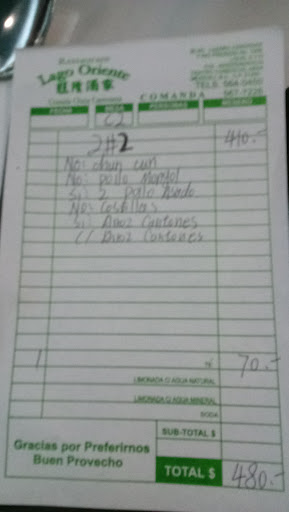 Restaurante
Lago Oriente
Comida China Cantonesa
COMANDA
TELS. 564-0400
567-7225
FECHA MESA PERSONAS MESERO
C2
2#2 410.-
No: chun cun
No: pollo Mongol
Si: 2 Pollo Asado
No: Costillas
Si: Arroz Cantones
// Arroz Cantones
1 TÉ 70.-
LIMONADA C/ AGUA NATURAL
LIMONADA C/ AGUA MINERAL
SODA
SUB-TOTAL $
Gracias por Preferirnos
Buen Provecho
TOTAL $ 480.-